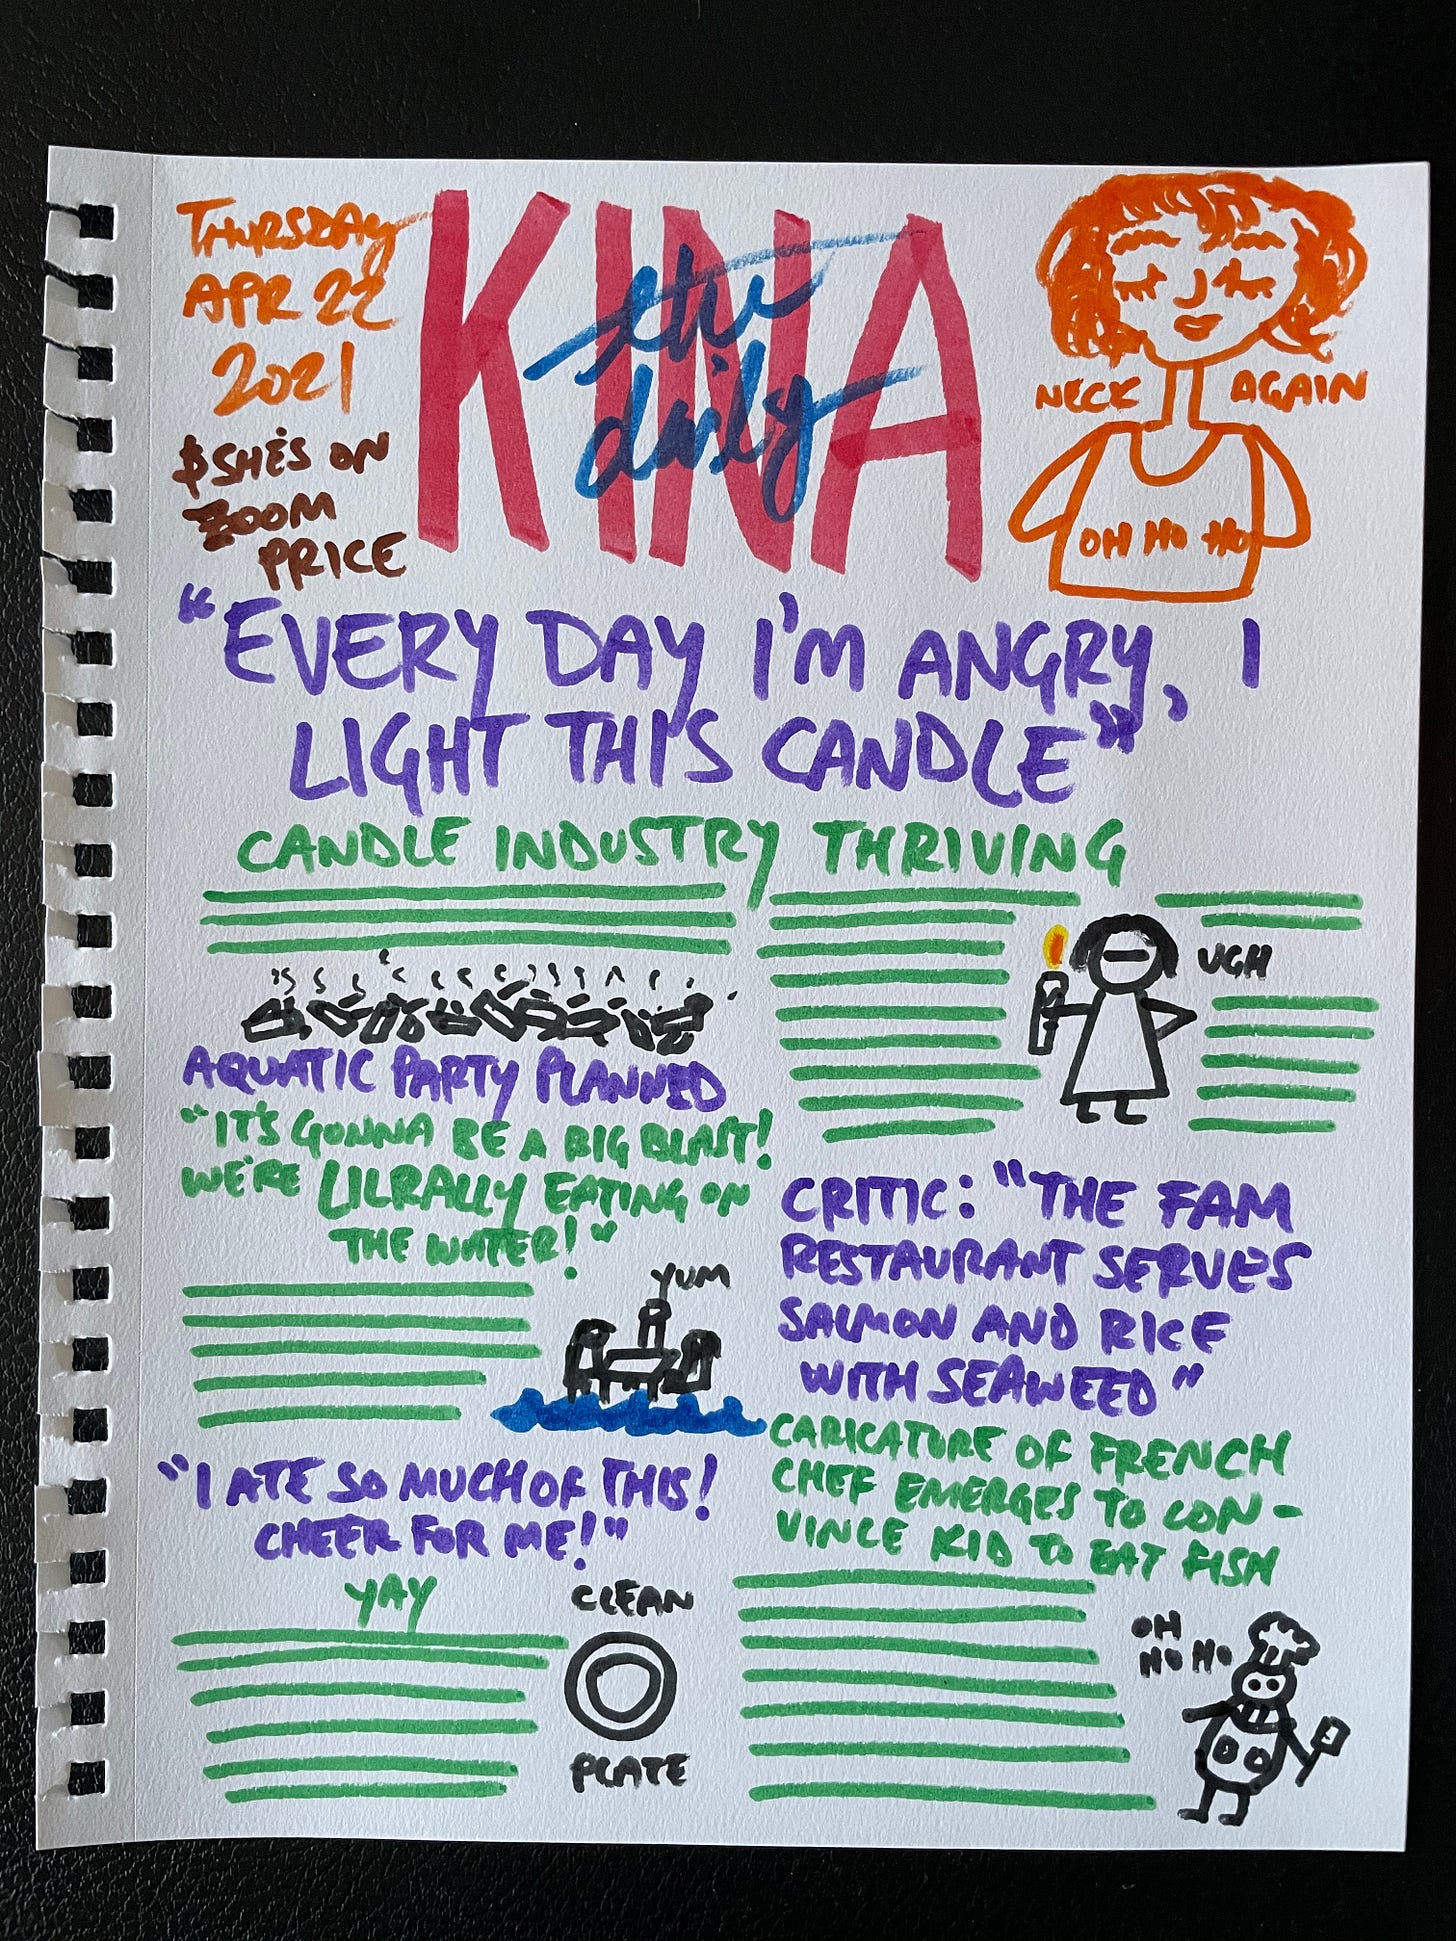 THURSDAY
APR 22
2021
$SHE'S ON
ZOOM
PRICE
KINA
the
daily
NECK AGAIN
OH HO HO
"EVERY DAY I'M ANGRY, I
LIGHT THIS CANDLE"
CANDLE INDUSTRY THRIVING
UGH
AQUATIC PARTY PLANNED
"IT'S GONNA BE A BIG BLAST!
WE'RE LILRALLY EATING ON
THE WATER!"
YUM
"I ATE SO MUCH OF THIS!
CHEER FOR ME!"
YAY
CLEAN
PLATE
CRITIC: "THE FAM
RESTAURANT SERVES
SALMON AND RICE
WITH SEAWEED"
CARICATURE OF FRENCH
CHEF EMERGES TO CON-
VINCE KID TO EAT FISH
OH
HO HO